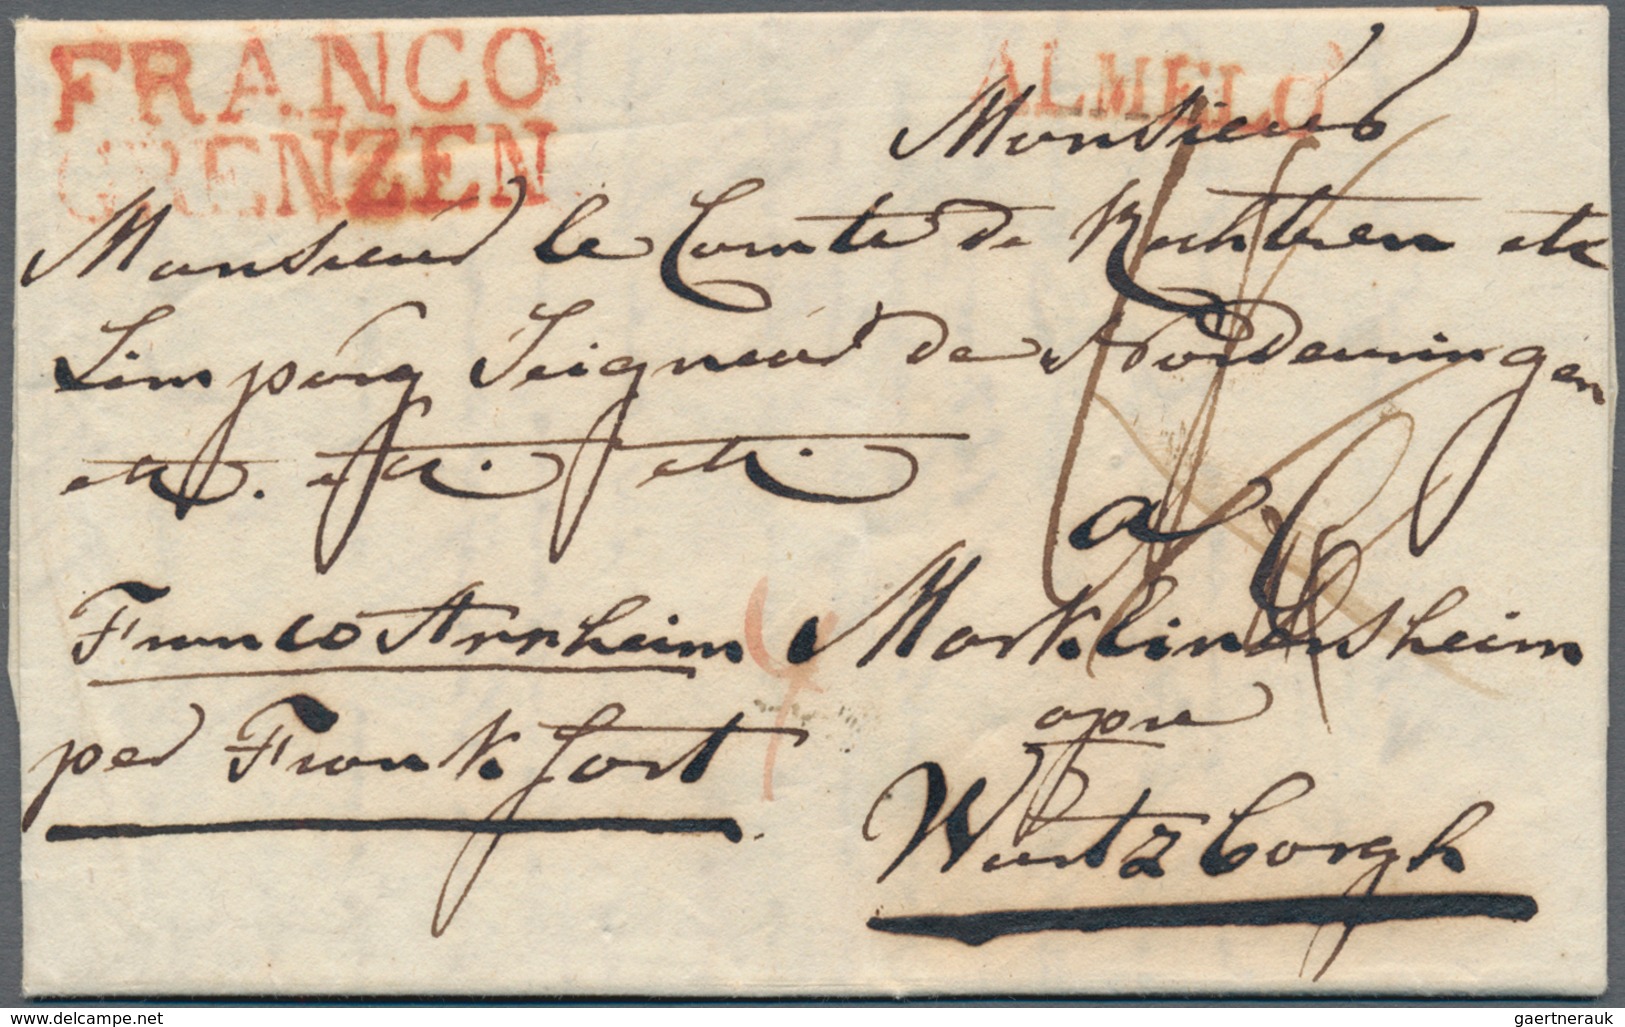 FRANCO
GRENZEN
ALMELO
Monsieur
Monsieur le Comte de Rechteren etc
Limpürg Seigneur de Nordeuningen
etc. etc. etc.
a
Franco Arnheim Marklindersheim
per Frankfort apre
Wurtzborgh
www.delcampe.net
gaertnerauk